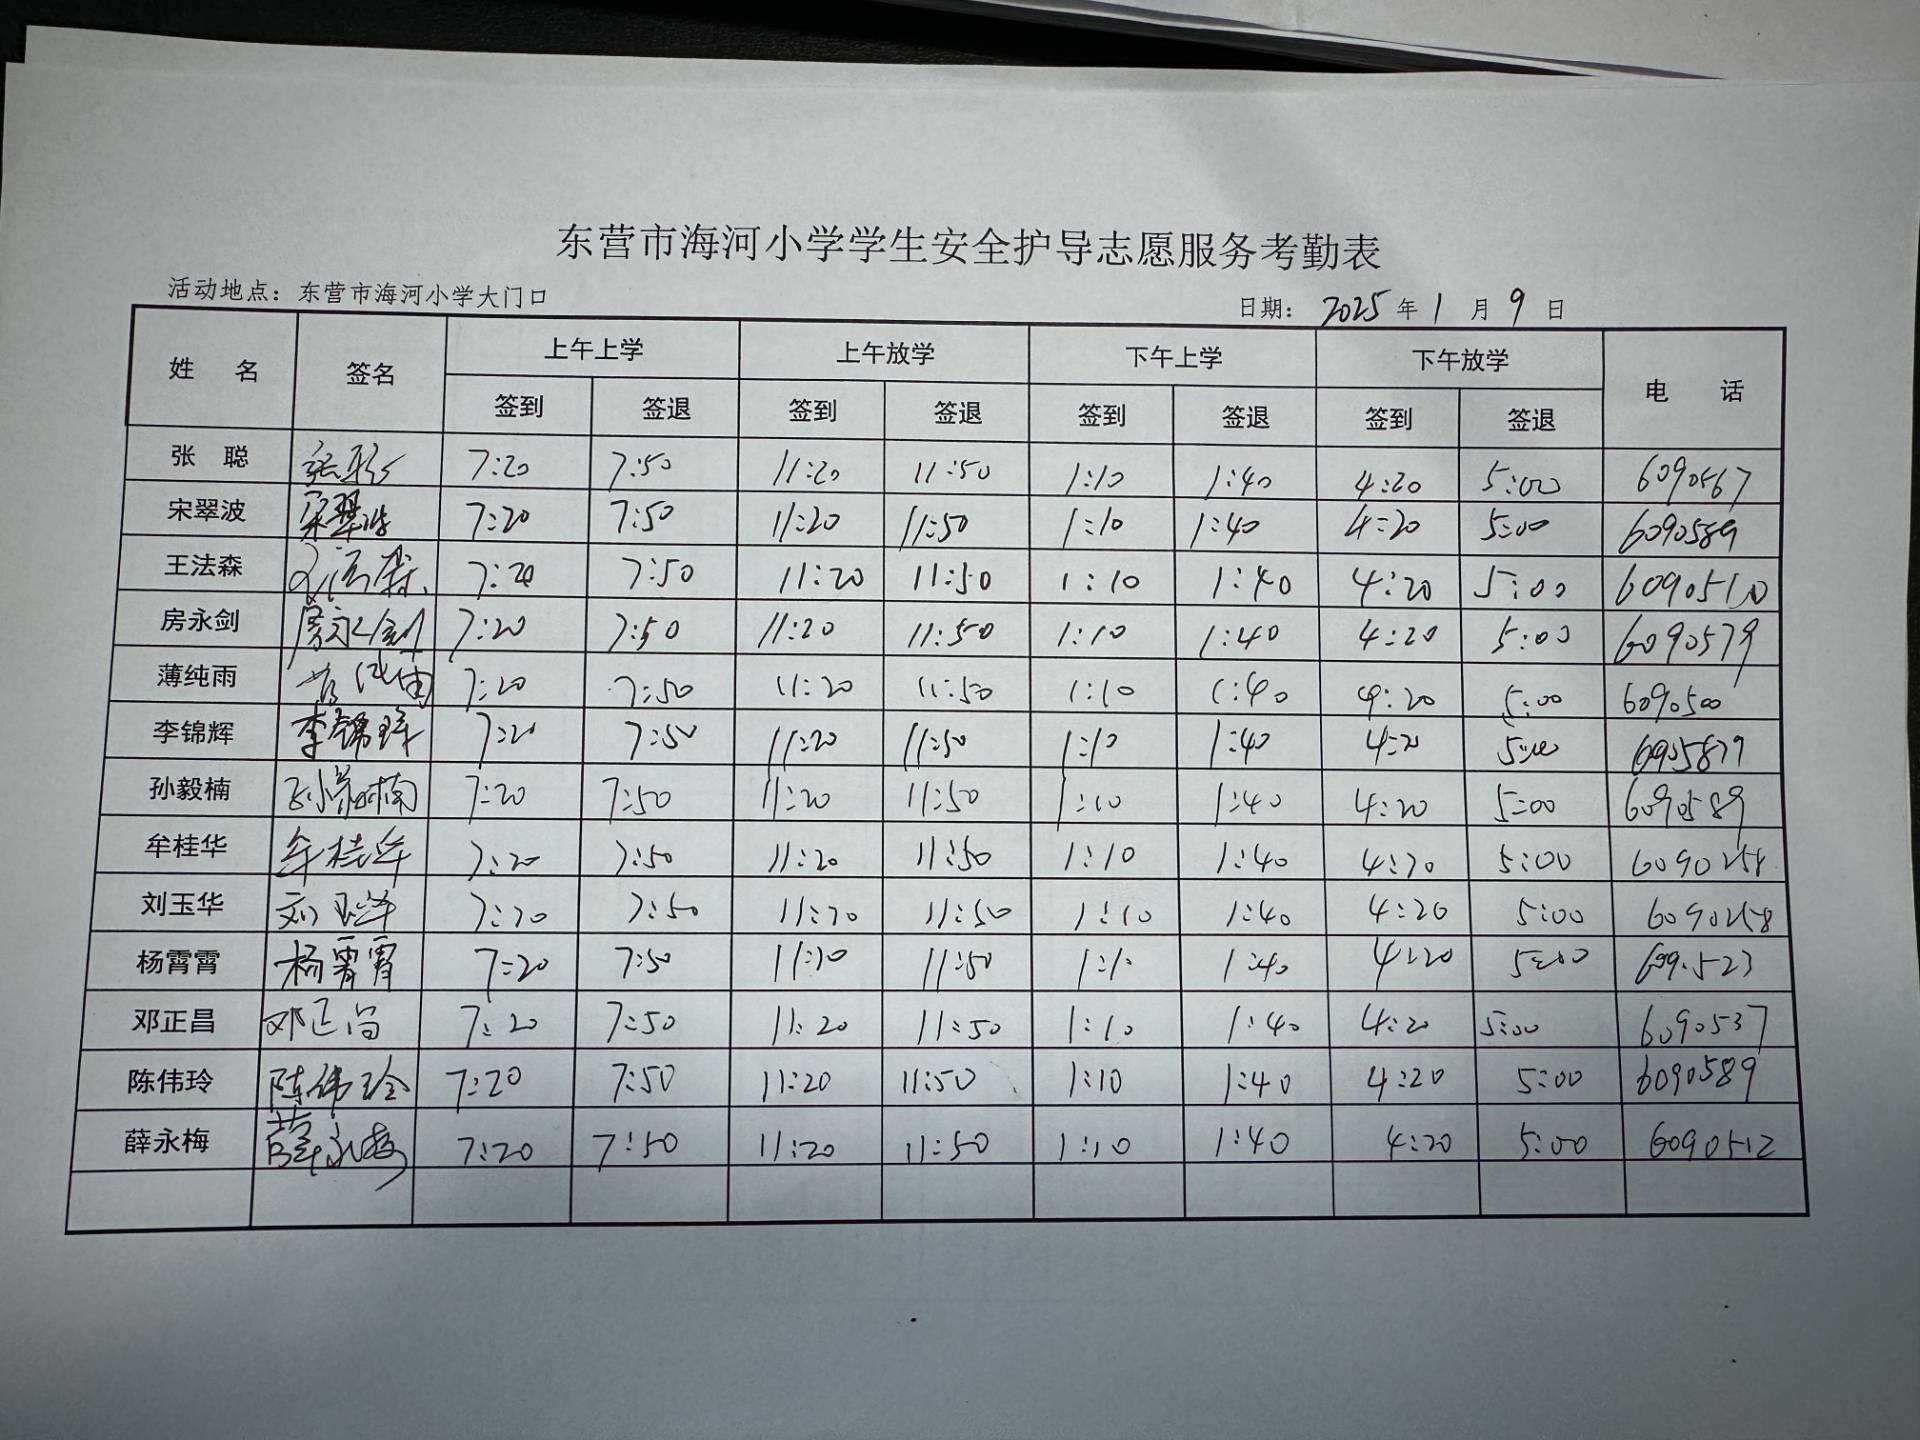 东营市海河小学学生安全护导志愿服务考勤表
活动地点：东营市海河小学大门口 日期：2025年1月9日
姓 名 签名 上午上学 上午放学 下午上学 下午放学 电 话
签到 签退 签到 签退 签到 签退 签到 签退
张 聪 张聪 7:20 7:50 11:20 11:50 1:10 1:40 4:20 5:00 6090567
宋翠波 宋翠波 7:20 7:50 11:20 11:50 1:10 1:40 4:20 5:00 6090589
王法森 王法森 7:20 7:50 11:20 11:50 1:10 1:40 4:20 5:00 6090510
房永剑 房永剑 7:20 7:50 11:20 11:50 1:10 1:40 4:20 5:00 6090579
薄纯雨 7:20 7:50 11:20 11:50 1:10 1:40 4:20 5:00 6090500
李锦辉 李锦辉 7:20 7:50 11:20 11:50 1:10 1:40 4:20 5:00
孙毅楠 孙毅楠 7:20 7:50 11:20 11:50 1:10 1:40 4:20 5:00 6090589
牟桂华 牟桂华 7:20 7:50 11:20 11:50 1:10 1:40 4:20 5:00 6090258
刘玉华 刘玉华 7:20 7:50 11:20 11:50 1:10 1:40 4:20 5:00 6090258
杨霄霄 杨霄霄 7:20 7:50 11:20 11:50 1:10 1:40 4:20 5:00 6090523
邓正昌 邓正昌 7:20 7:50 11:20 11:50 1:10 1:40 4:20 5:00 6090537
陈伟玲 陈伟玲 7:20 7:50 11:20 11:50 1:10 1:40 4:20 5:00 6090589
薛永梅 薛永梅 7:20 7:50 11:20 11:50 1:10 1:40 4:20 5:00 6090512